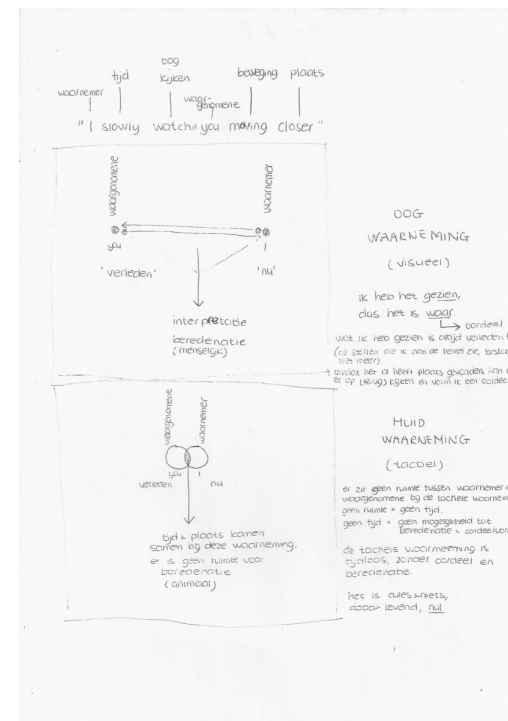 oog
tijd kijken beweging plaats
waarnemer waar-
genomene
"I slowly watch you moving closer"
waargenomene
waarnemer
you I
'verleden' 'nu'
interpretatie
beredenatie
(menselijk)
OOG
WAARNEMING
(visueel)
ik heb het gezien,
dus het is waar.
oordeel
wat ik heb gezien is altijd verleden
(de sterren die ik aan de hemel zie,
niet meer)
omdat het al heeft plaats gevonden kan
er op (terug) kijken en vorm ik een
waargenomene
waarnemer
you I
verleden nu
tijd & plaats komen
samen bij deze waarneming.
er is geen ruimte voor
beredenatie
(animaal)
HUID
WAARNEMING
(tactiel)
er zit geen ruimte tussen waarnemer
waargenomene bij de tactiele
geen ruimte = geen tijd.
geen tijd = geen mogelijkheid tot
beredenatie &
de tactiele waarneming is
tijdloos, zonder oordeel en
beredenatie.
het is alles & niets,
dood & levend, nul